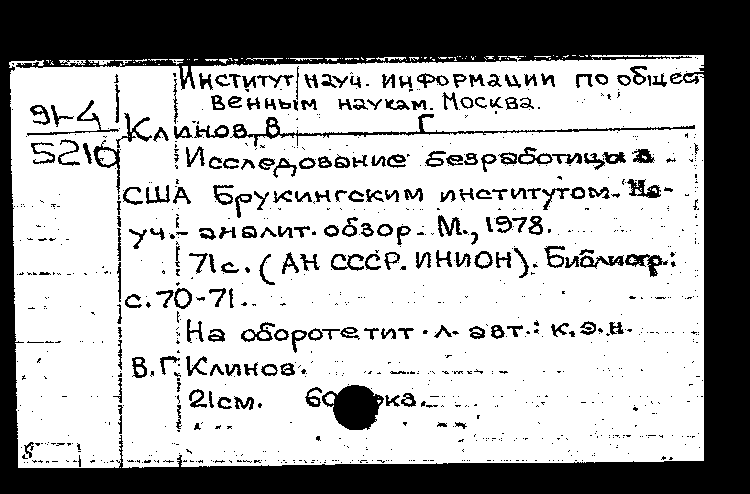 Институт науч. информации по общест
венным наукам. Москва.
Клинов, В. Г
5210
Исследование безработицы в
США Брукингским институтом. На-
уч.- аналит. обзор. М., 1978.
71с. (АН СССР. ИНИОН). Библиогр.:
с. 70-71.
На обороте тит. л. авт.: к.э.н.
В.Г. Клинов.
21см.
8